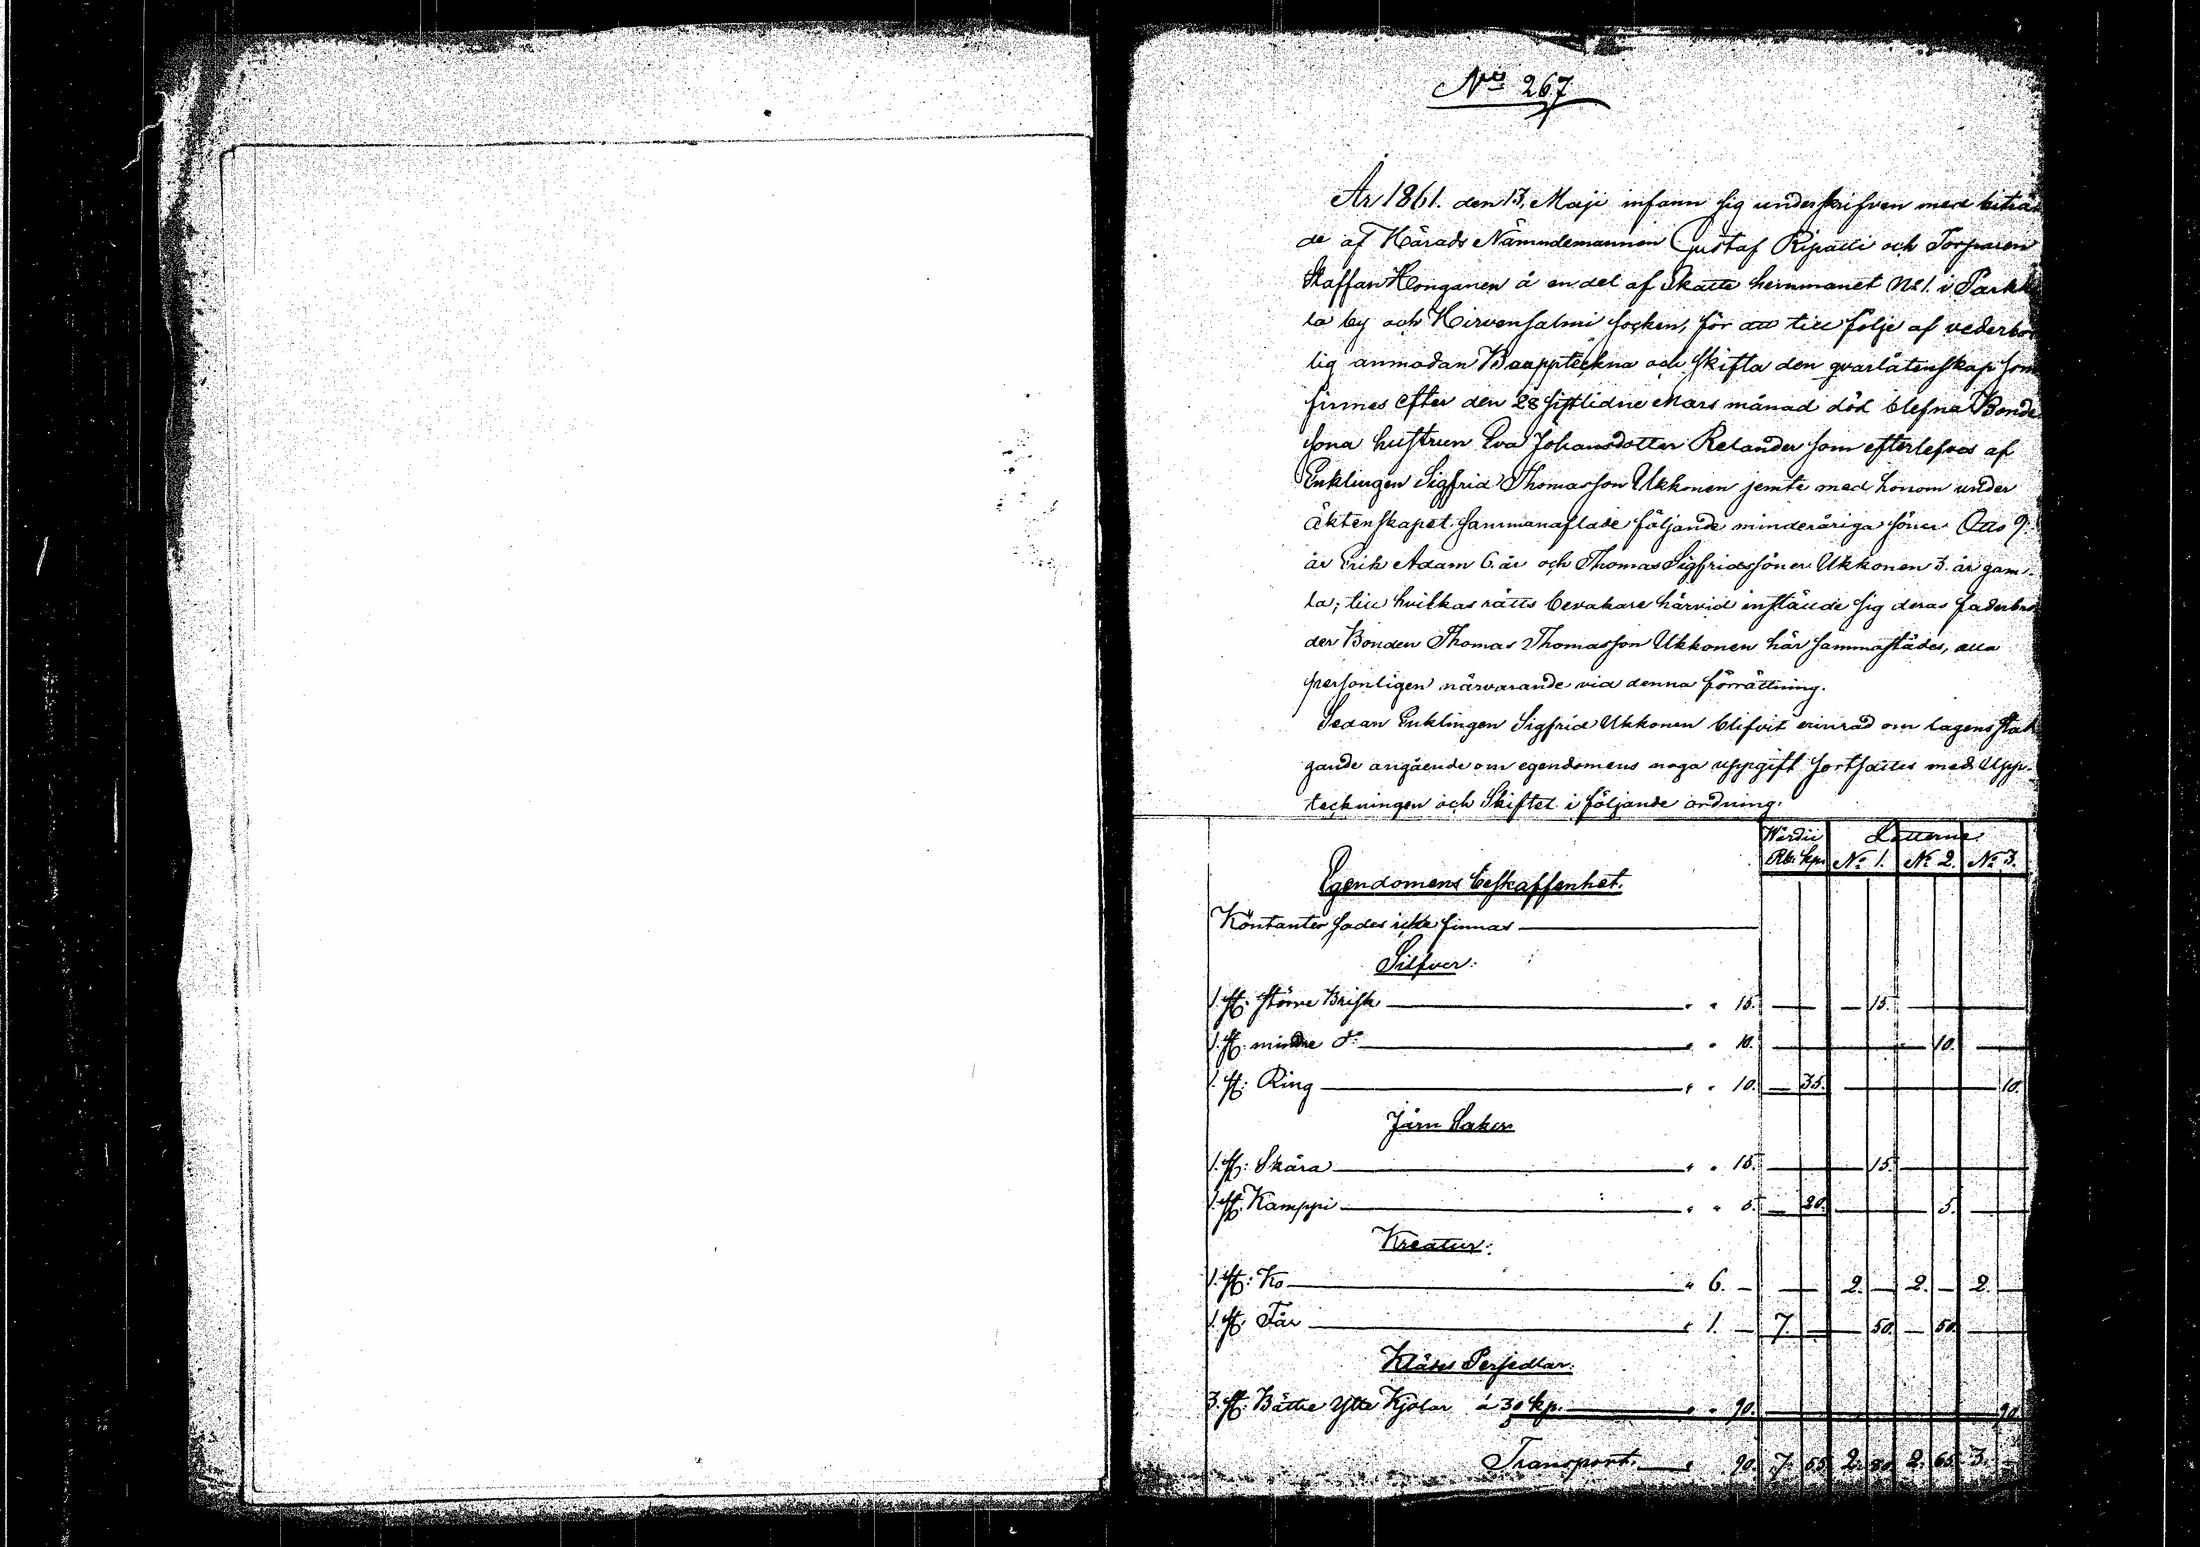 No 267
År 1861. den 13. Maji infann sig underskrifven med biträ-
de af Härads Nämndemannen Gustaf Ripatti och Torparen
Staffan Honganen å en del af Skatte hemmanet No 1. i Parkk
la by och Hirvensalmi socken, för att till följe af vederbör
lig anmodan Bouppteckna och skifta den qvarlåtenskap som
finnes efter den 28 sistlidne Mars månad död blefna Bonde
sona hustrun Eva Johansdotter Relander som efterlefves af
Enklingen Sigfrid Thomasson Ukkonen jemte med honom under
äktenskapet sammanaflade följande minderåriga söner Otto 9.
år Erik Adam 6. år och Thomas Sigfridssöner Ukkonen 3. år gam-
la; till hvilkas rätts bevakare härvid inställde sig deras faderbro
der Bonden Thomas Thomasson Ukkonen här sammastädes, alla
personligen närvarande vid denna förrättning.
Sedan Enklingen Sigfrid Ukkonen blifvit erinrad om lagens stad
gande angående om egendomens noga uppgift fortsattes med Upp-
teckningen och Skiftet i följande ordning.
Wärdii Lotterne
Rbl. kp. No 1. No 2. No 3.
Egendomens beskaffenhet.
Kontanter sades icke finnas
Silfver:
1. st. större Brisk " " 15. — — 15.
1. st. mindre do " " 10. — 10.
1. st. Ring " " 10. — 35. — 10.
Järn Saker
1. st. Skära " " 15. — 15.
1. st. Kamppi " " 5. — 20. — 5.
Kreatur:
1. st. Ko " 6. — — 2. — 2. — 2. —
1. st. Får " 1. — 7. — — 50. — 50. —
Klädes Persedlar.
3. st. Bättre Ytte Kjolar á 30 kp. " " 90. — 90.
Transport. " 90. 7. 55. 2. 80. 2. 65. 3. —